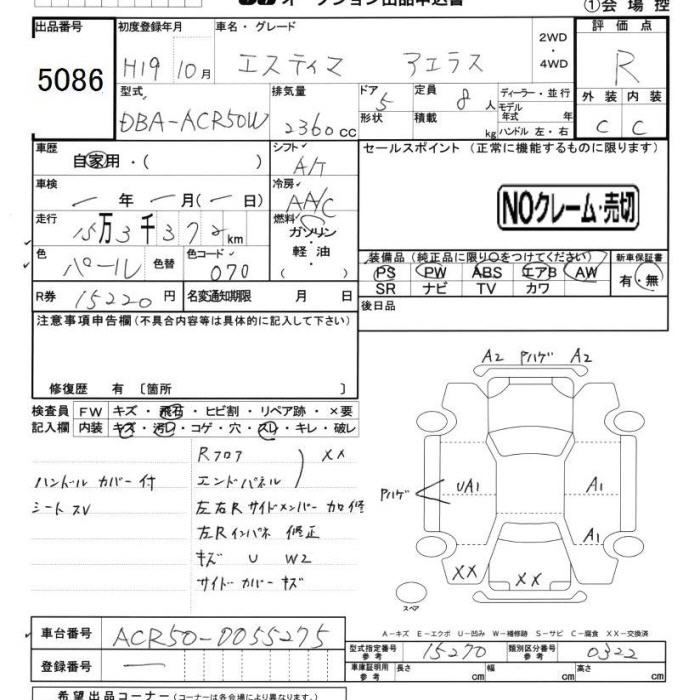 オークション出品申込書
①会場控
出品番号
5086
初度登録年月
H19 10月
車名・グレード
エスティマ アエラス
2WD
・
4WD
評価点
R
型式
DBA-ACR50W
排気量
2360cc
ドア 5
形状
定員 8人
積載 kg
ディーラー・並行
モデル
年式 年
ハンドル 左・右
外装 内装
C C
車歴
自家用・( )
シフト
A/T
セールスポイント (正常に機能するものに限ります)
NOクレーム・売切
車検
一年 一月(一日)
冷房
AA/C
走行
15万3千372km
燃料
ガソリン
・
軽油
・
( )
色
パール
色替
色コード
070
装備品(純正品に限り○をつけてください)
PS PW ABS エアB AW
SR ナビ TV カワ
新車保証書
有・無
R券
15220円
名変通知期限 月 日
後日品
注意事項申告欄(不具合内容等は具体的に記入して下さい)
修復歴 有 〔箇所 〕
検査員
記入欄
FW キズ・飛石・ヒビ割・リペア跡・×要
内装 キズ・汚レ・コゲ・穴・スレ・キレ・破レ
ハンドル カバー 付
シート SV
Rフロア
エンドパネル ) XX
左右R サイドメンバー 加修
左R インパネ 修正
キズ U W2
サイド カバー キズ
A2 Pハゲ A2
Pハゲ
UA1
A1
A1
XX
XX
スペア
A-キズ E-エクボ U-凹み W-補修跡 S-サビ C-腐食 XX-交換済
車台番号
ACR50-0055275
登録番号
一
型式指定番号
参考
15270
類別区分番号
参考
0322
車庫証明用
参考
長さ cm
幅 cm
高さ cm
希望出品コーナー(コーナーは各会場により異なります。)